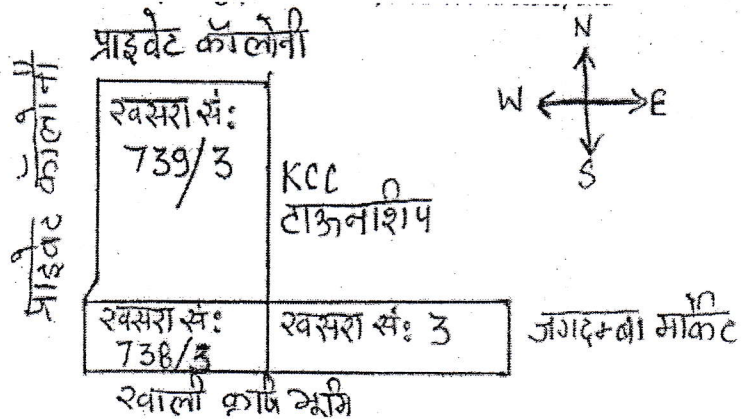 प्राइवेट कॉलोनी
N
W E
S
प्राइवेट कॉलोनी
खसरा सं:
739/3
KCC
टाऊनशिप
खसरा सं:
738/3
खसरा सं: 3
जगदम्बा मार्केट
खाली कृषि भूमि